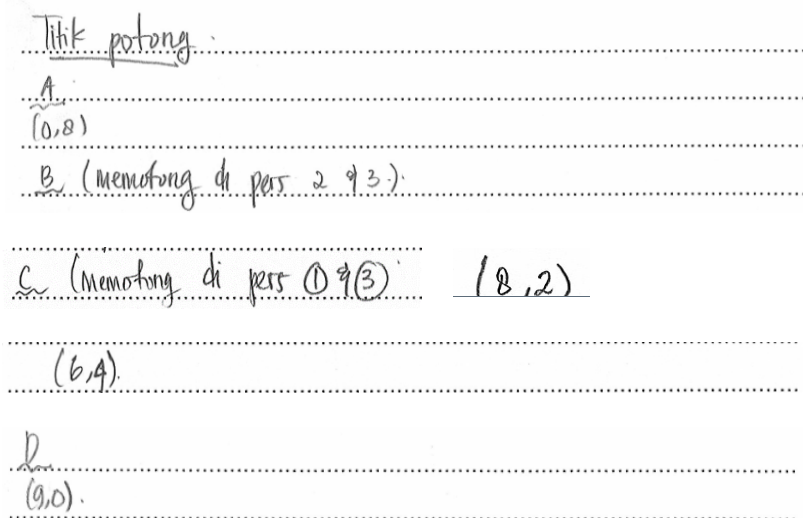 Titik potong.
A
(0,8)
B (memotong di pers 2 & 3).
C (memotong di pers ① & ③ (8,2)
(6,4).
D
(9,0).